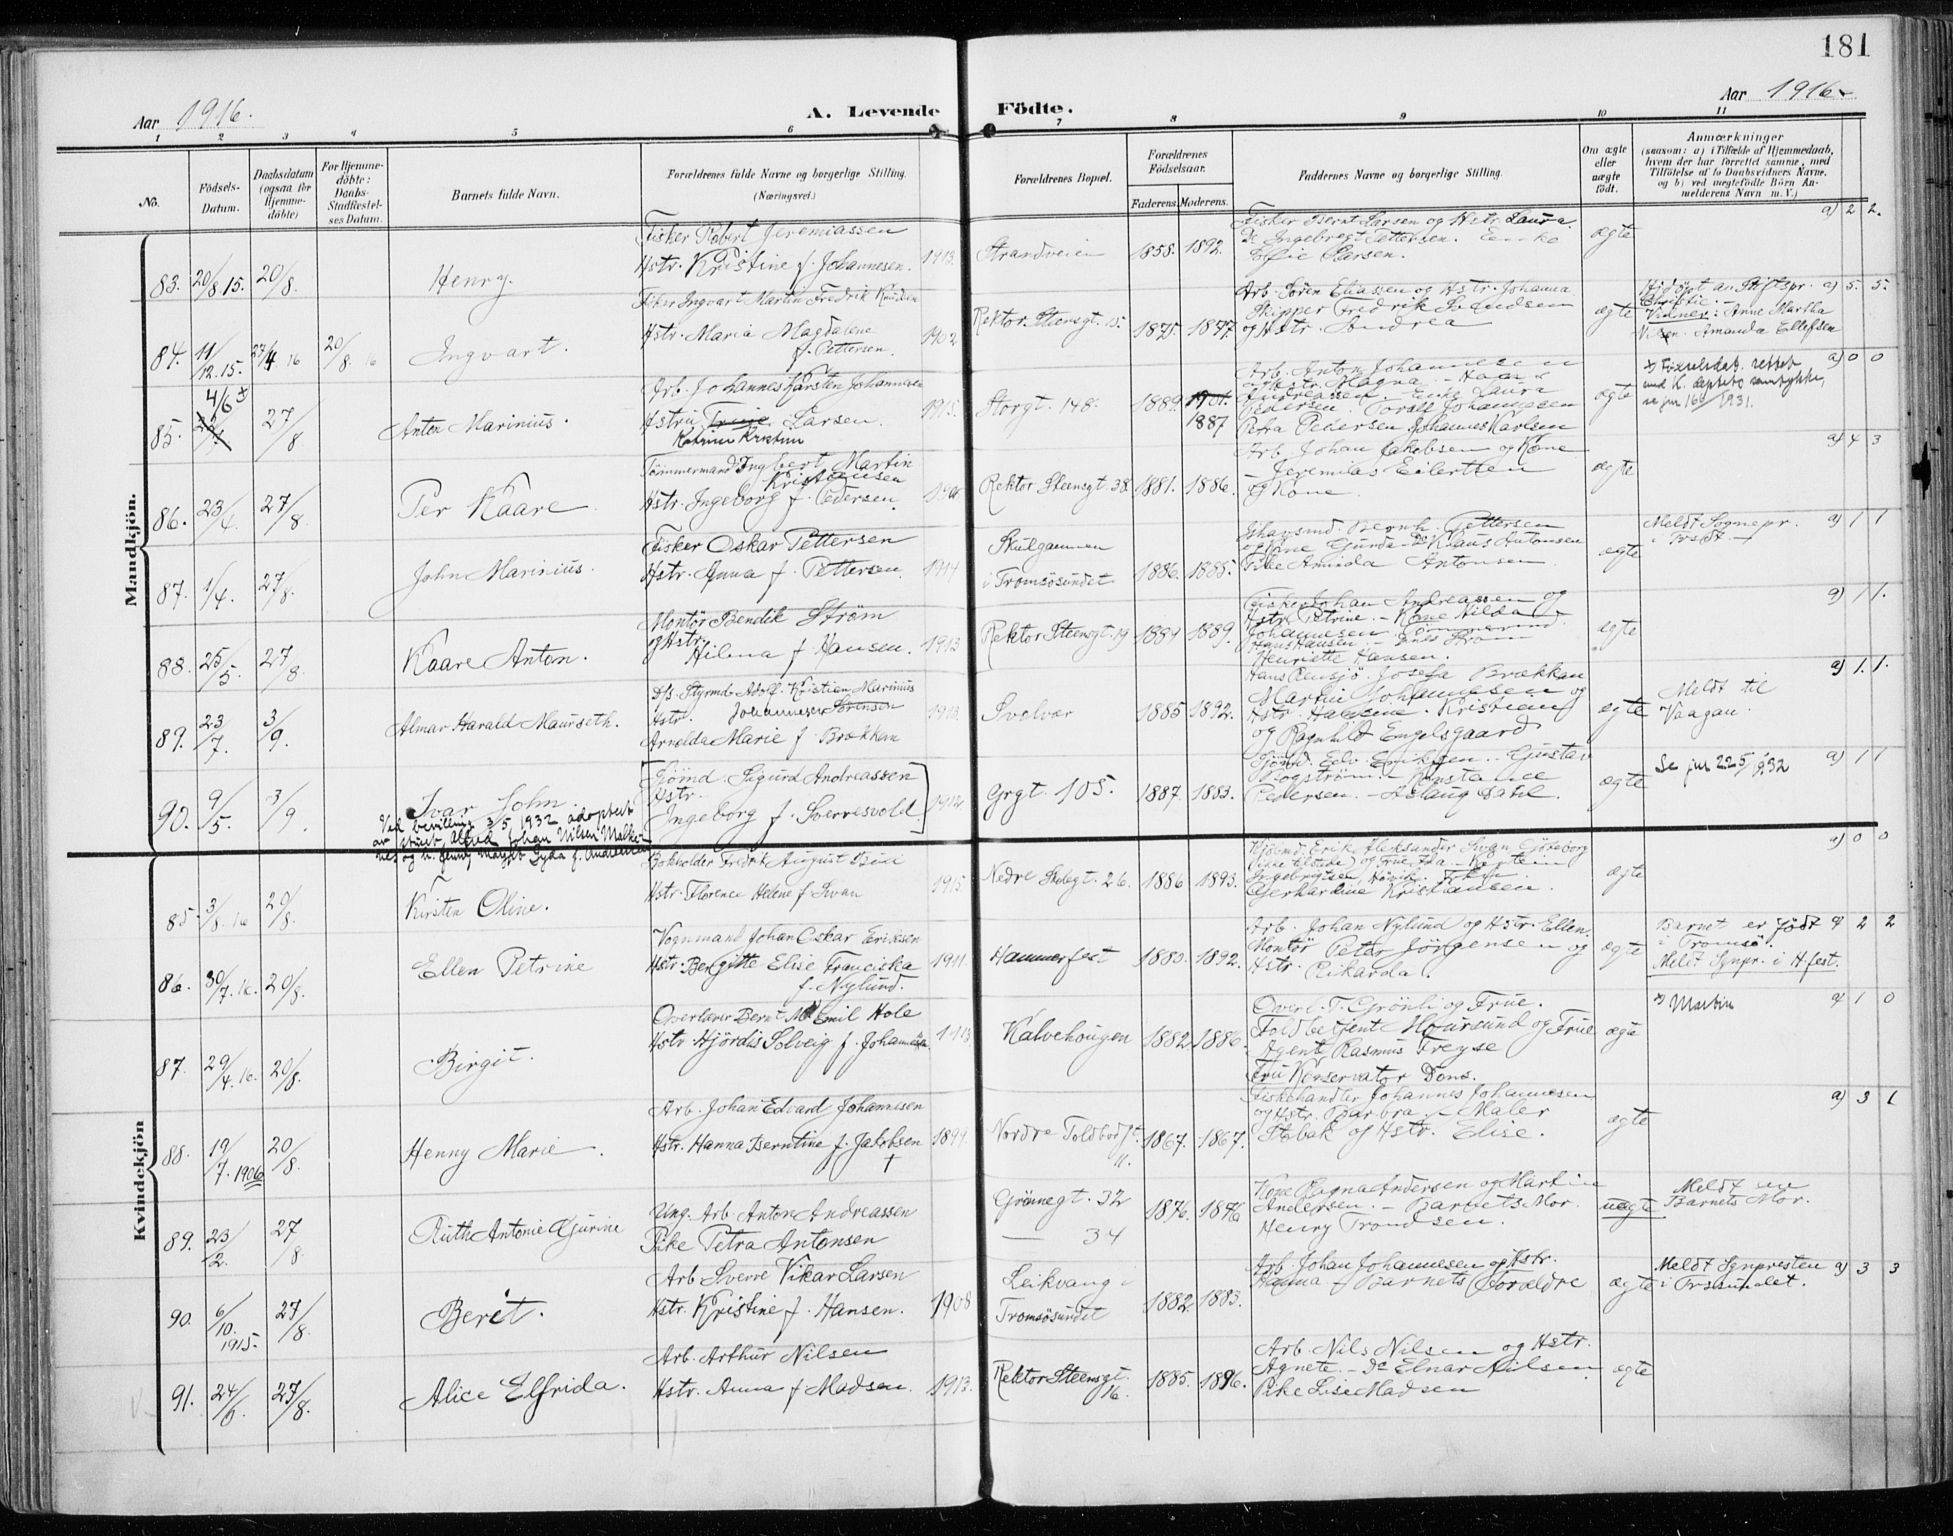 181
Aar 1916.
A. Levende Födte.
Aar 1916
1 2 3 4 5 6 7 8 9 10 11
No.
Födsels-Datum.
Daabsdatum (ogsaa for Hjemme-döbte)
For Hjemme-döbte: Daabs-Stadfæstel-ses Datum.
Barnets fulde Navn.
Forældrenes fulde Navne og borgerlige Stilling. (Næringsvei.)
Forældrenes Bopæl.
Forældrenes Födselsaar.
Faderens. Moderens.
Faddernes Navne og borgerlige Stilling.
Om ægte eller uægte födt.
Anmærkninger
(saasom: a) i Tilfælde af Hjemmedaab, hvem der har forrettet samme, med Tilföielse af to Daabsvidners Navne, og b) ved uægtefödte Börn An-melderens Navn m. V.)
Mandkjön.
83. 20/8.15. 20/8. Henry.
Fisker Robert Jeremiassen
Hstr. Kristine f. Johannesen. 1913.
Strandveien 1858. 1892.
Fisker Bernt Larsen og Hstr. Laura.
Ingebregt Pettersen.
Larsen.
ægte
a) 2 2.
84. 11/12.15. 27/4 16 20/8. 16 Ingvart.
Fisker Ingvart Martin Fredrik Knudsen
Hstr. Maria Magdalene
f. Pettersen. 1902
Rektor Steensgt. 15. 1875. 1877.
Arb. Sören Eliassen og Hstr. Johanna
Skipper Fredrik
og Hstr. Andrea
ægte
Hjdöpt av Stiftspr.
Vidner: Anne Martha
Amanda Ellefsen
a) 5. 5.
85. 4/6 x 27/8 Anton Marinius.
Arb. Johannes Karsten Johannesen
Hstru Larsen. 1915.
Storgt. 148. 1889. 1887
Arb. Anton Johannesen
Hstr. Magna
Andreassen. Laura
Pedersen. Johannessen
Petra Pedersen Johannes Karlsen
ægte
x Födselsdat. rettet
1931.
a) 0 0
86. 23/4. 27/8. Per Kaare
Tömmermand Ingbert Martin
Kristensen
Hstr. Ingeborg f. Pedersen.
Rektor Steensgt. 38. 1881. 1886.
Arb. Johan Jakobsen og Kone
— Jeremias Eilertsen
og Kone.
ægte
a) 4 3
87. 1/4. 27/8. John Marinius.
Fisker Oskar Pettersen
Hstr. Anna f. Pettersen. 1914
Skulgammen
i Tromsösundet. 1886. 1888.
Bernh. Pettersen
og Kone Gurda Klaus Antonsen
Pike Antonsen
ægte
Meldt Sognepr.
a) 1 1
88. 25/5. 27/8. Kaare Anton.
Montör Bendik Ström
og Hstr.
Hilena f. Hansen. 1913
Rektor Steensgt. 19 1884 1889.
Fisker Johan Andreassen og
Hstr. Petrine. — Kone Hilda
Johannesen.
Hans Hansen — Ström
Henriette Hansen.
ægte
a) 1 1.
89. 23/7. 3/9. Almar Harald Maurseth.
D/s. Styrmd Adolf Kristian Marinius
Hstr. Johannesen Sörensen
Arnolda Marie f. Brækken 1913.
Svolvær 1885 1892.
Josefa Brækkan
Martin Johannesen og
Hstr. Kristian
og Ragnhild Engelsgaard
ægte
Meldt til
Vaagan.
a) 1. 1.
90. 9/5. 3/9. Ivar John.
Ved bevilling 3/5 1932 adoptert
av Alfred Johan Nilsen
Sigurd Andreassen
Hstr.
Ingeborg f. Sverresvold 1912
Grgt. 105. 1887. 1883.
Edv. Eriksen. Gustav
Konstanse
Pedersen. — Aslaug Dahl.
ægte
Se jnr 225/1932
a) 1 1
Kvindekjön
85. 3/8. 16 20/8. Kirsten Oline.
Bokholder Fredrik August
Hstr. Florence Helene f. Svan 1915
Nedre Skolegt. 26. 1886 1893.
Kjöbmd. Erik Aleksander Svan Göteborg
(ikke tilstede) og Frue Ida.
Ingebrigtsen
Gerhardine Kristiansen.
ægte
a) 0 0
86. 30/7. 16. 20/8. Ellen Petrine
Vognmand Johan Oskar Eriksen
Hstr. Bergitte Elise Franciska
f. Nylund. 1911
Hammerfest 1880. 1892.
Arb. Johan Nylund og Hstr. Ellen.
Montör Peter Jörgensen og
Hstr. Rikarda.
ægte
Barnet er födt
i Tromsö.
Meldt Sgnpr. i H.fest.
a) 2 2
87. 29/4. 16. 20/8. Birgit.
Overlærer Bernt M. Emil Hole
Hstr Hjördis Solveig f. Johannesen. 1913.
Kalvehougen 1882 1886.
Overl. T. Grönli og Frue.
Toldbetjent Moursund og Frue
Agent Rasmus Freyse
Fru Konservator Dons.
ægte
x) Martin
a) 1 0
88. 19/7. 1906 20/8. Henny Marie
Arb. Johan Edvard Johannesen
Hstr. Hanna Berntine f. Jakobsen
†
1899
Nordre Toldbodgt. 11. 1867. 1867.
Fiskehandler Johannes Johannesen
og Hstr. Barbra. — Maler
Stabak og Hstr. Elise.
ægte
a) 3 1
89. 23/2. 27/8 Ruth Antonie Gjurine
Ung. Arb. Anton Andreassen
Pike Petra Antonsen
Grönnegt. 32
— 34
1876. 1876
Kone Ragna Andersen og Martin
Andersen. — Barnets Mor.
Henry Trondsen.
uægte
Meldt av
Barnets Mor.
90. 6/10. 1915. 27/8. Berit.
Arb Sverre Vikar Larsen
Hstr. Kristine f. Hansen. 1908
Leikvang i
Tromsösundet 1882. 1883.
Arb. Johan Johannesen og Hstr.
Hanna — Barnets Forældre
ægte
Meldt Sgnpresten
i Trssundet.
a) 3 3
91. 24/6. 27/8. Alice Elfrida.
Arb. Arthur Nilsen
Hstr. Anna f Madsen. 1913.
Rektor Steensgt. 16. 1885. 1896.
Arb. Nils Nilsen og Hstr.
Agnete. — Do Einar Nilsen
Pike Lise Madsen
ægte